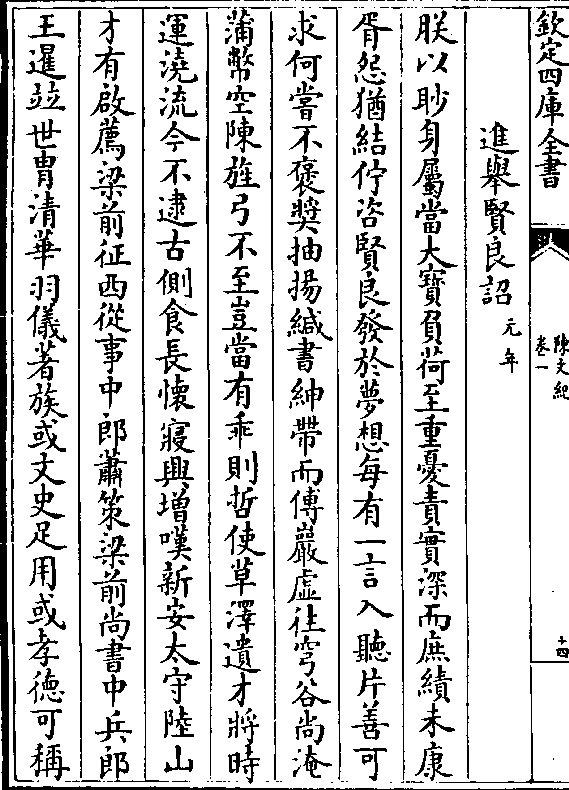 欽定四庫全書
陳文紀
卷一
十四
進舉賢良詔元年
朕以眇身屬當大寶負荷至重憂責實深而庶績未康
胥怨猶結佇咨賢良發於夢想每有一言入聽片善可
求何嘗不褒奬抽揚緘書紳帶而傅巖虛往穹谷尚淹
蒲幣空陳旌弓不至豈當有乖則哲使草澤遺才將時
運澆流今不逮古側食長懷寢興增嘆新安太守陸山
才有啟薦梁前征西從事中郎蕭策梁前尚書中兵郎
王暹竝世胄清華羽儀著族或文史足用或孝德可稱